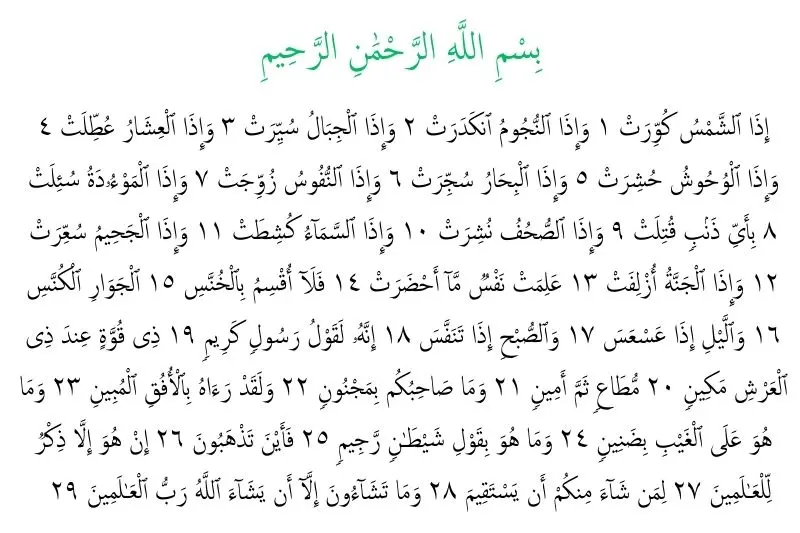 بِسْمِ اللَّهِ الرَّحْمَٰنِ الرَّحِيمِ
إِذَا ٱلشَّمْسُ كُوِّرَتْ ١ وَإِذَا ٱلنُّجُومُ ٱنكَدَرَتْ ٢ وَإِذَا ٱلْجِبَالُ سُيِّرَتْ ٣ وَإِذَا ٱلْعِشَارُ عُطِّلَتْ ٤
وَإِذَا ٱلْوُحُوشُ حُشِرَتْ ٥ وَإِذَا ٱلْبِحَارُ سُجِّرَتْ ٦ وَإِذَا ٱلنُّفُوسُ زُوِّجَتْ ٧ وَإِذَا ٱلْمَوْءُۥدَةُ سُئِلَتْ
٨ بِأَيِّ ذَنۢبٍ قُتِلَتْ ٩ وَإِذَا ٱلصُّحُفُ نُشِرَتْ ١٠ وَإِذَا ٱلسَّمَآءُ كُشِطَتْ ١١ وَإِذَا ٱلْجَحِيمُ سُعِّرَتْ
١٢ وَإِذَا ٱلْجَنَّةُ أُزْلِفَتْ ١٣ عَلِمَتْ نَفْسٌ مَّآ أَحْضَرَتْ ١٤ فَلَآ أُقْسِمُ بِٱلْخُنَّسِ ١٥ ٱلْجَوَارِ ٱلْكُنَّسِ
١٦ وَٱلَّيْلِ إِذَا عَسْعَسَ ١٧ وَٱلصُّبْحِ إِذَا تَنَفَّسَ ١٨ إِنَّهُۥ لَقَوْلُ رَسُولٍ كَرِيمٍ ١٩ ذِى قُوَّةٍ عِندَ ذِى
ٱلْعَرْشِ مَكِينٍ ٢٠ مُّطَاعٍ ثَمَّ أَمِينٍ ٢١ وَمَا صَاحِبُكُم بِمَجْنُونٍ ٢٢ وَلَقَدْ رَءَاهُ بِٱلْأُفُقِ ٱلْمُبِينِ ٢٣ وَمَا
هُوَ عَلَى ٱلْغَيْبِ بِضَنِينٍ ٢٤ وَمَا هُوَ بِقَوْلِ شَيْطَٰنٍ رَّجِيمٍ ٢٥ فَأَيْنَ تَذْهَبُونَ ٢٦ إِنْ هُوَ إِلَّا ذِكْرٌ
لِّلْعَٰلَمِينَ ٢٧ لِمَن شَآءَ مِنكُمْ أَن يَسْتَقِيمَ ٢٨ وَمَا تَشَآءُونَ إِلَّآ أَن يَشَآءَ ٱللَّهُ رَبُّ ٱلْعَٰلَمِينَ ٢٩